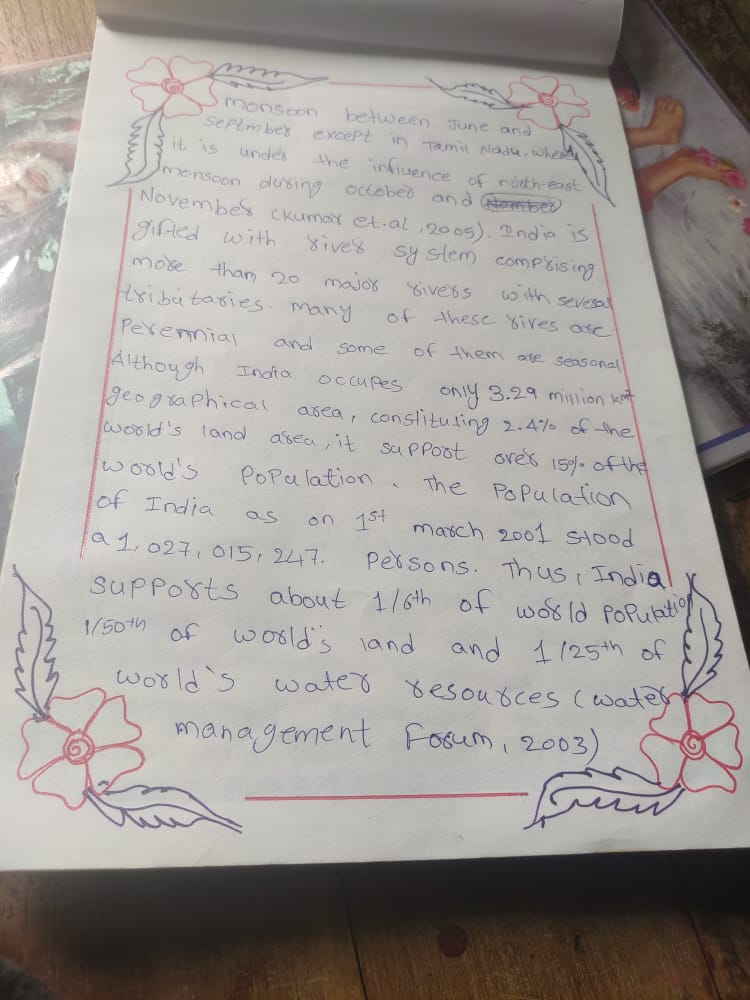 monsoon between June and
Septmber except in Tamil Nadu, where
it is under the influence of north-east
monsoon during october and
November (Kumar et.al, 2005). India is
gifted with river system comprising
more than 20 major rivers with several
tributaries. many of these rives are
Perennial and some of them are seasonal
Although India occupes only 3.29 million km²
geographical area, constituting 2.4% of the
world's land area, it support over 15% of the
world's Population. The Population
of India as on 1st march 2001 stood
a 1,027,015,247. Persons. Thus, India
supports about 1/6th of world Population
1/50th of world's land and 1/25th of
world's water resources (water
management Forum, 2003)